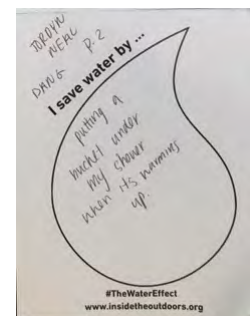 JORDYN
NEAL
P.2
DANG
I save water by ...
putting a
bucket under
my shower
when its warming
up.
#TheWaterEffect
www.insidetheoutdoors.org